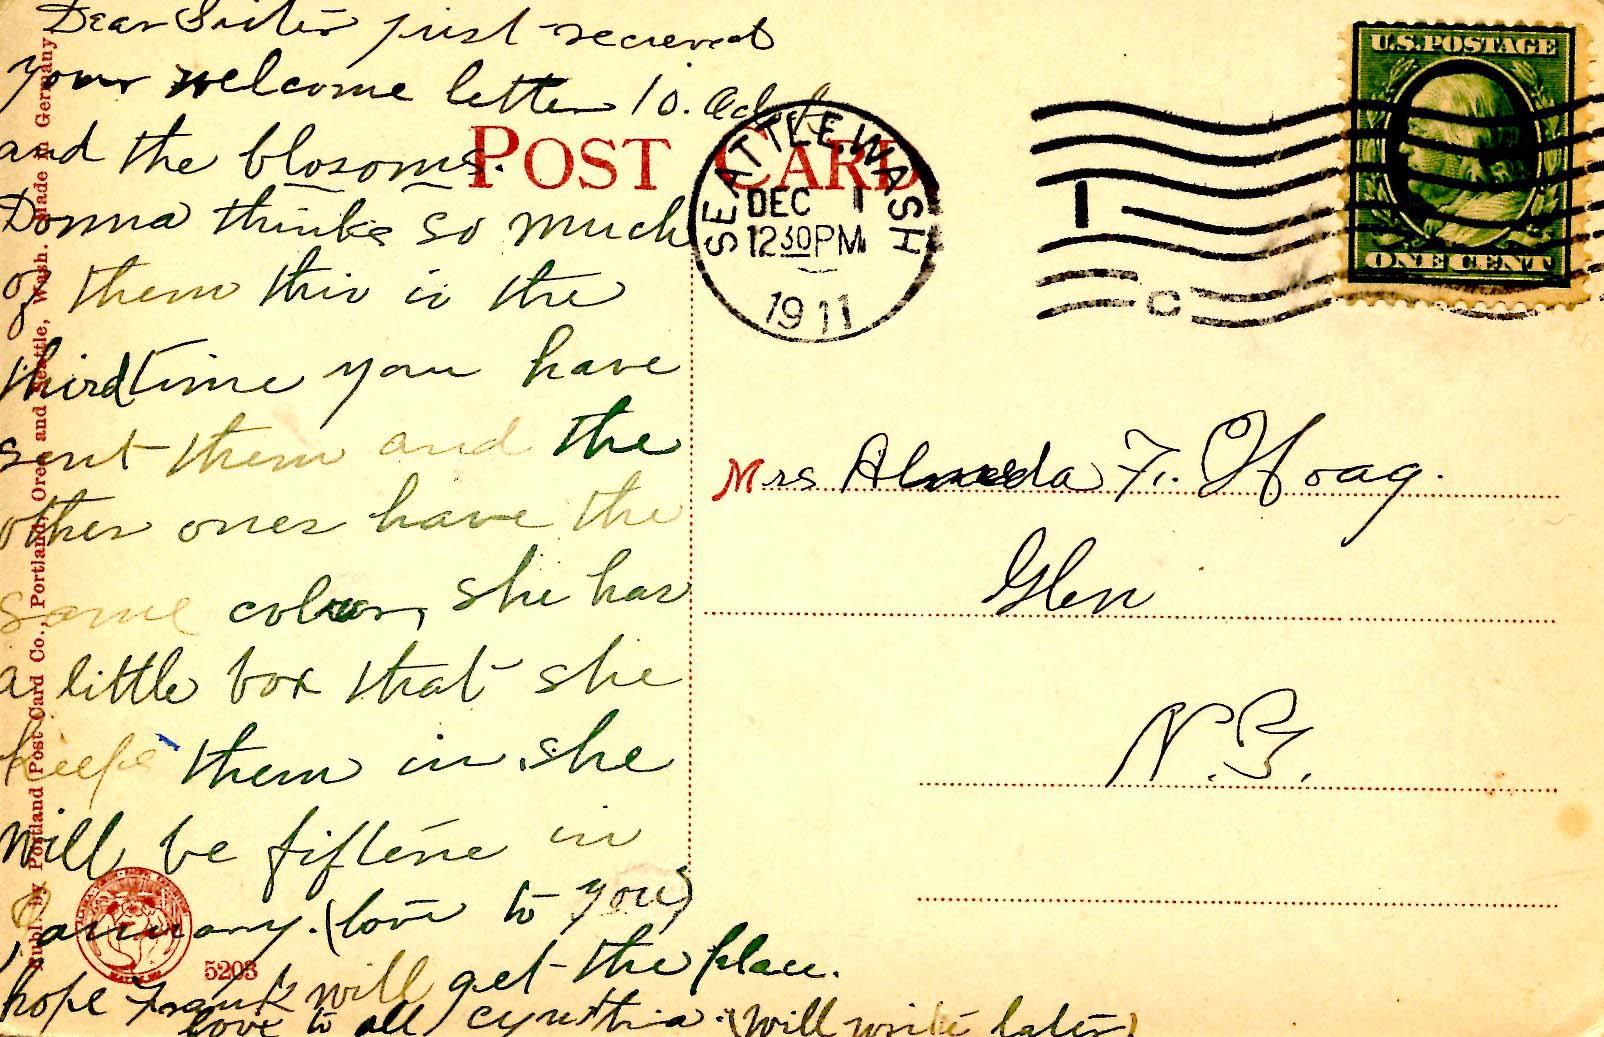 Dear Sister just recieved
your welcome letter 10.
and the blosoms.
Donna thinks so much
of them this is the
third time you have
sent them and the
other ones have the
same color, she has
a little box that she
keeps them in. she
will be fiftene in
January. (love to you)
hope Frank will get the place.
love to all Cynthia. (will write later)
POST CARD
SEATTLE, WASH.
DEC 1
12 30 PM
1911
1
C
U.S. POSTAGE
ONE CENT
Mrs Almeda F. Hoag.
Glen
N.Y.
Publ. by Portland Post Card Co., Portland, Ore. and Seattle, Wash. Made in Germany.
5203